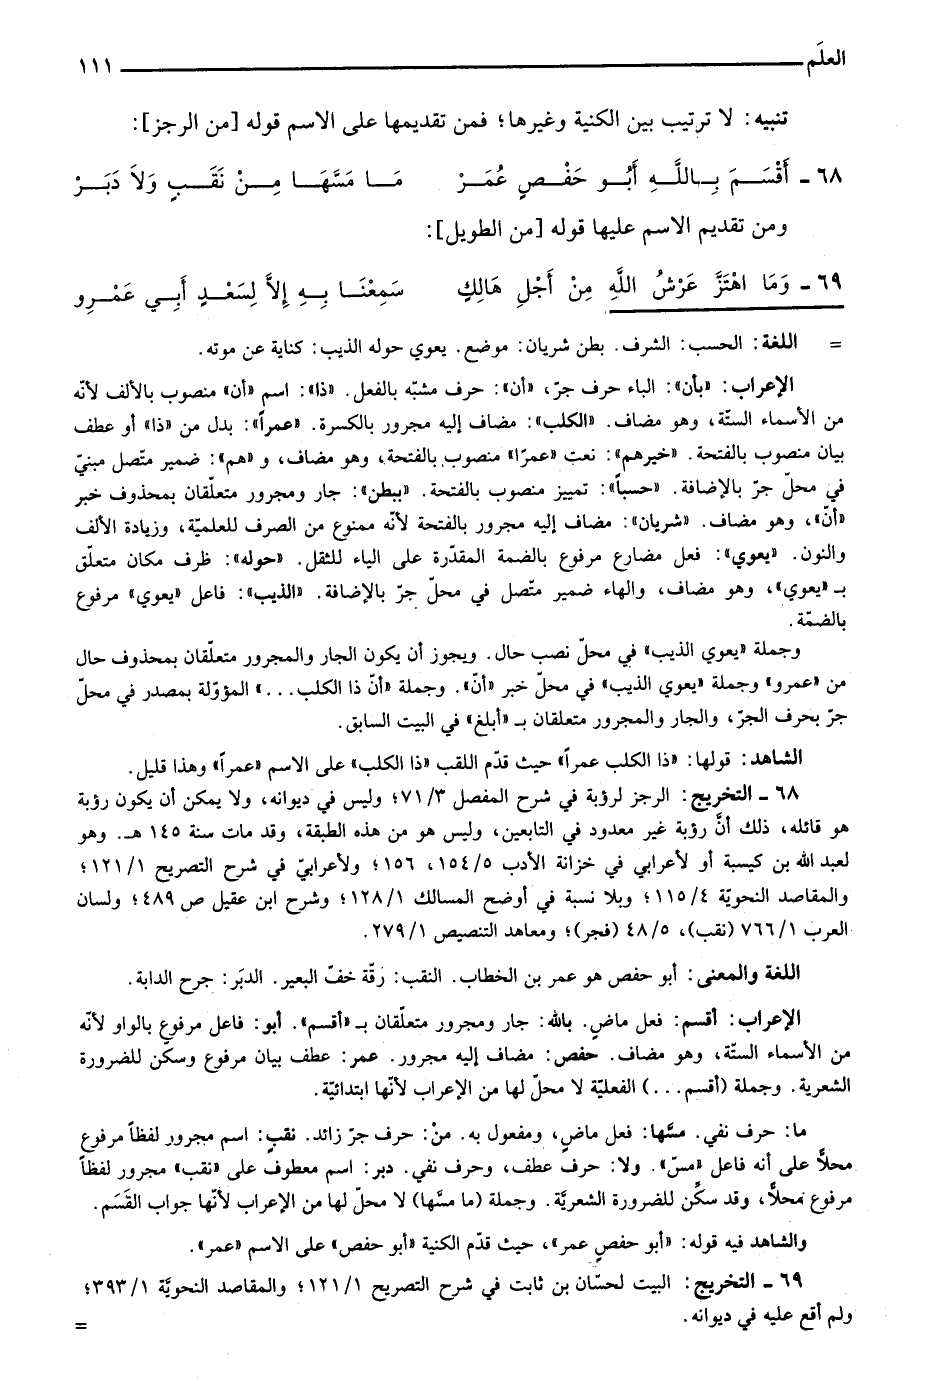 العلَم ١١١
تنبيه: لا ترتيب بين الكنية وغيرها؛ فمن تقديمها على الاسم قوله [من الرجز]:
٦٨ ـ أَقْسَمَ بِاللَّهِ أَبُو حَفْصٍ عُمَرْ مَا مَسَّهَا مِنْ نَقَبٍ وَلاَ دَبَرْ
ومن تقديم الاسم عليها قوله [من الطويل]:
٦٩ ـ وَمَا اهْتَزَّ عَرْشُ اللَّهِ مِنْ أَجْلِ هَالِكٍ سَمِعْنَا بِهِ إِلاَّ لِسَعْدٍ أَبِي عَمْرِو
= اللغة: الحسب: الشرف. بطن شريان: موضع. يعوي حوله الذيب: كناية عن موته.
الإعراب: «بأن»: الباء حرف جرّ، «أن»: حرف مشبّه بالفعل. «ذا»: اسم «أن» منصوب بالألف لأنّه
من الأسماء الستّة، وهو مضاف. «الكلب»: مضاف إليه مجرور بالكسرة. «عمراً»: بدل من «ذا» أو عطف
بيان منصوب بالفتحة. «خيرهم»: نعت «عمرًا» منصوب بالفتحة، وهو مضاف، و «هم»: ضمير متّصل مبنيّ
في محلّ جرّ بالإضافة. «حسباً»: تمييز منصوب بالفتحة. «ببطن»: جار ومجرور متعلّقان بمحذوف خبر
«أنّ»، وهو مضاف. «شريان»: مضاف إليه مجرور بالفتحة لأنّه ممنوع من الصرف للعلميّة، وزيادة الألف
والنون. «يعوي»: فعل مضارع مرفوع بالضمة المقدّرة على الياء للثقل. «حوله»: ظرف مكان متعلّق
بـ «يعوي»، وهو مضاف، والهاء ضمير متّصل في محلّ جرّ بالإضافة. «الذيب»: فاعل «يعوي» مرفوع
بالضمّة.
وجملة «يعوي الذيب» في محلّ نصب حال. ويجوز أن يكون الجار والمجرور متعلّقان بمحذوف حال
من «عمرو» وجملة «يعوي الذيب» في محلّ خبر «أنّ». وجملة «أنّ ذا الكلب...» المؤوّلة بمصدر في محلّ
جرّ بحرف الجرّ، والجار والمجرور متعلقان بـ «أبلغ» في البيت السابق.
الشاهد: قولها: «ذا الكلب عمراً» حيث قدّم اللقب «ذا الكلب» على الاسم «عمراً» وهذا قليل.
٦٨ ـ التخريج: الرجز لرؤبة في شرح المفصل ٧١/٣؛ وليس في ديوانه، ولا يمكن أن يكون رؤبة
هو قائله، ذلك أنَّ رؤبة غير معدود في التابعين، وليس هو من هذه الطبقة، وقد مات سنة ١٤٥ هـ. وهو
لعبد الله بن كيسبة أو لأعرابي في خزانة الأدب ١٥٤/٥، ١٥٦؛ ولأعرابيّ في شرح التصريح ١٢١/١؛
والمقاصد النحويّة ١١٥/٤؛ وبلا نسبة في أوضح المسالك ١٢٨/١؛ وشرح ابن عقيل ص ٤٨٩؛ ولسان
العرب ٧٦٦/١ (نقب)، ٤٨/٥ (فجر)؛ ومعاهد التنصيص ٢٧٩/١.
اللغة والمعنى: أبو حفص هو عمر بن الخطاب. النقب: رقّة خفّ البعير. الدبَر: جرح الدابة.
الإعراب: أقسم: فعل ماضٍ. بالله: جار ومجرور متعلّقان بـ «أقسم». أبو: فاعل مرفوع بالواو لأنّه
من الأسماء الستّة، وهو مضاف. حفص: مضاف إليه مجرور. عمر: عطف بيان مرفوع وسكّن للضرورة
الشعرية. وجملة (أقسم...) الفعليّة لا محلّ لها من الإعراب لأنّها ابتدائيّة.
ما: حرف نفي. مسَّها: فعل ماضٍ، ومفعول به. منْ: حرف جرّ زائد. نقبٍ: اسم مجرور لفظاً مرفوع
محلاًّ على أنه فاعل «مسّ». ولا: حرف عطف، وحرف نفي. دبر: اسم معطوف على «نقب» مجرور لفظاً
مرفوع محلاًّ، وقد سكِّن للضرورة الشعريَّة. وجملة (ما مسَّها) لا محلّ لها من الإعراب لأنّها جواب القَسَم.
والشاهد فيه قوله: «أبو حفصٍ عمر»، حيث قدّم الكنية «أبو حفص» على الاسم «عمر».
٦٩ ـ التخريج: البيت لحسّان بن ثابت في شرح التصريح ١٢١/١؛ والمقاصد النحويَّة ٣٩٣/١؛
ولم أقع عليه في ديوانه. =